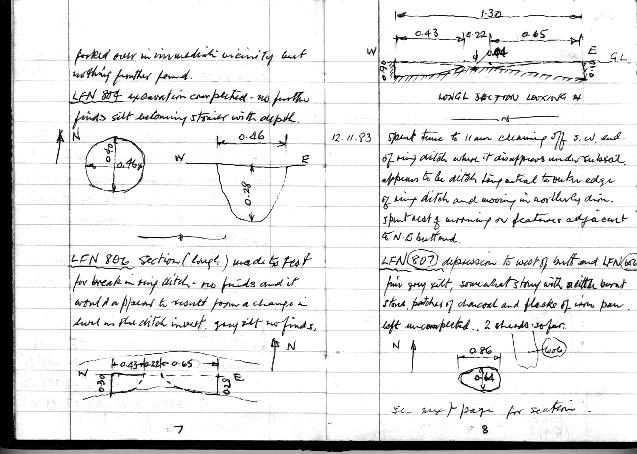 forked over in immediate vicinity but
nothing further found.
LFN 804 excavation completed - no further
finds silt becoming stonier with depth.
N
0.40
0.46
W 0.46 E
0.28
LFN 806 Section (Longl) made to test
for break in ring ditch - no finds and it
would appear to result from a change in
level in the ditch invert. grey silt no finds.
N
0.43 0.22 0.65
E
0.30
0.28
7
1.30
0.43 0.22 0.65
W E
G.L.
LONGL SECTION LOOKING N
12.11.93 Spent time to 11am cleaning off S.W. end
of ring ditch where it disappears under subsoil
appears to be ditch tangential to outer edge
of ring ditch and moving in northerly dirn.
Spent rest of morning on features adjacent
to N.E butt end.
LFN 807 depression to west of butt end LFN 606
fair grey silt, somewhat stony with a little burnt
stone patches of charcoal and flecks of iron pan
left uncompleted.. 2 sherds so far.
N
0.86
0.64
606
See next page for section.
8